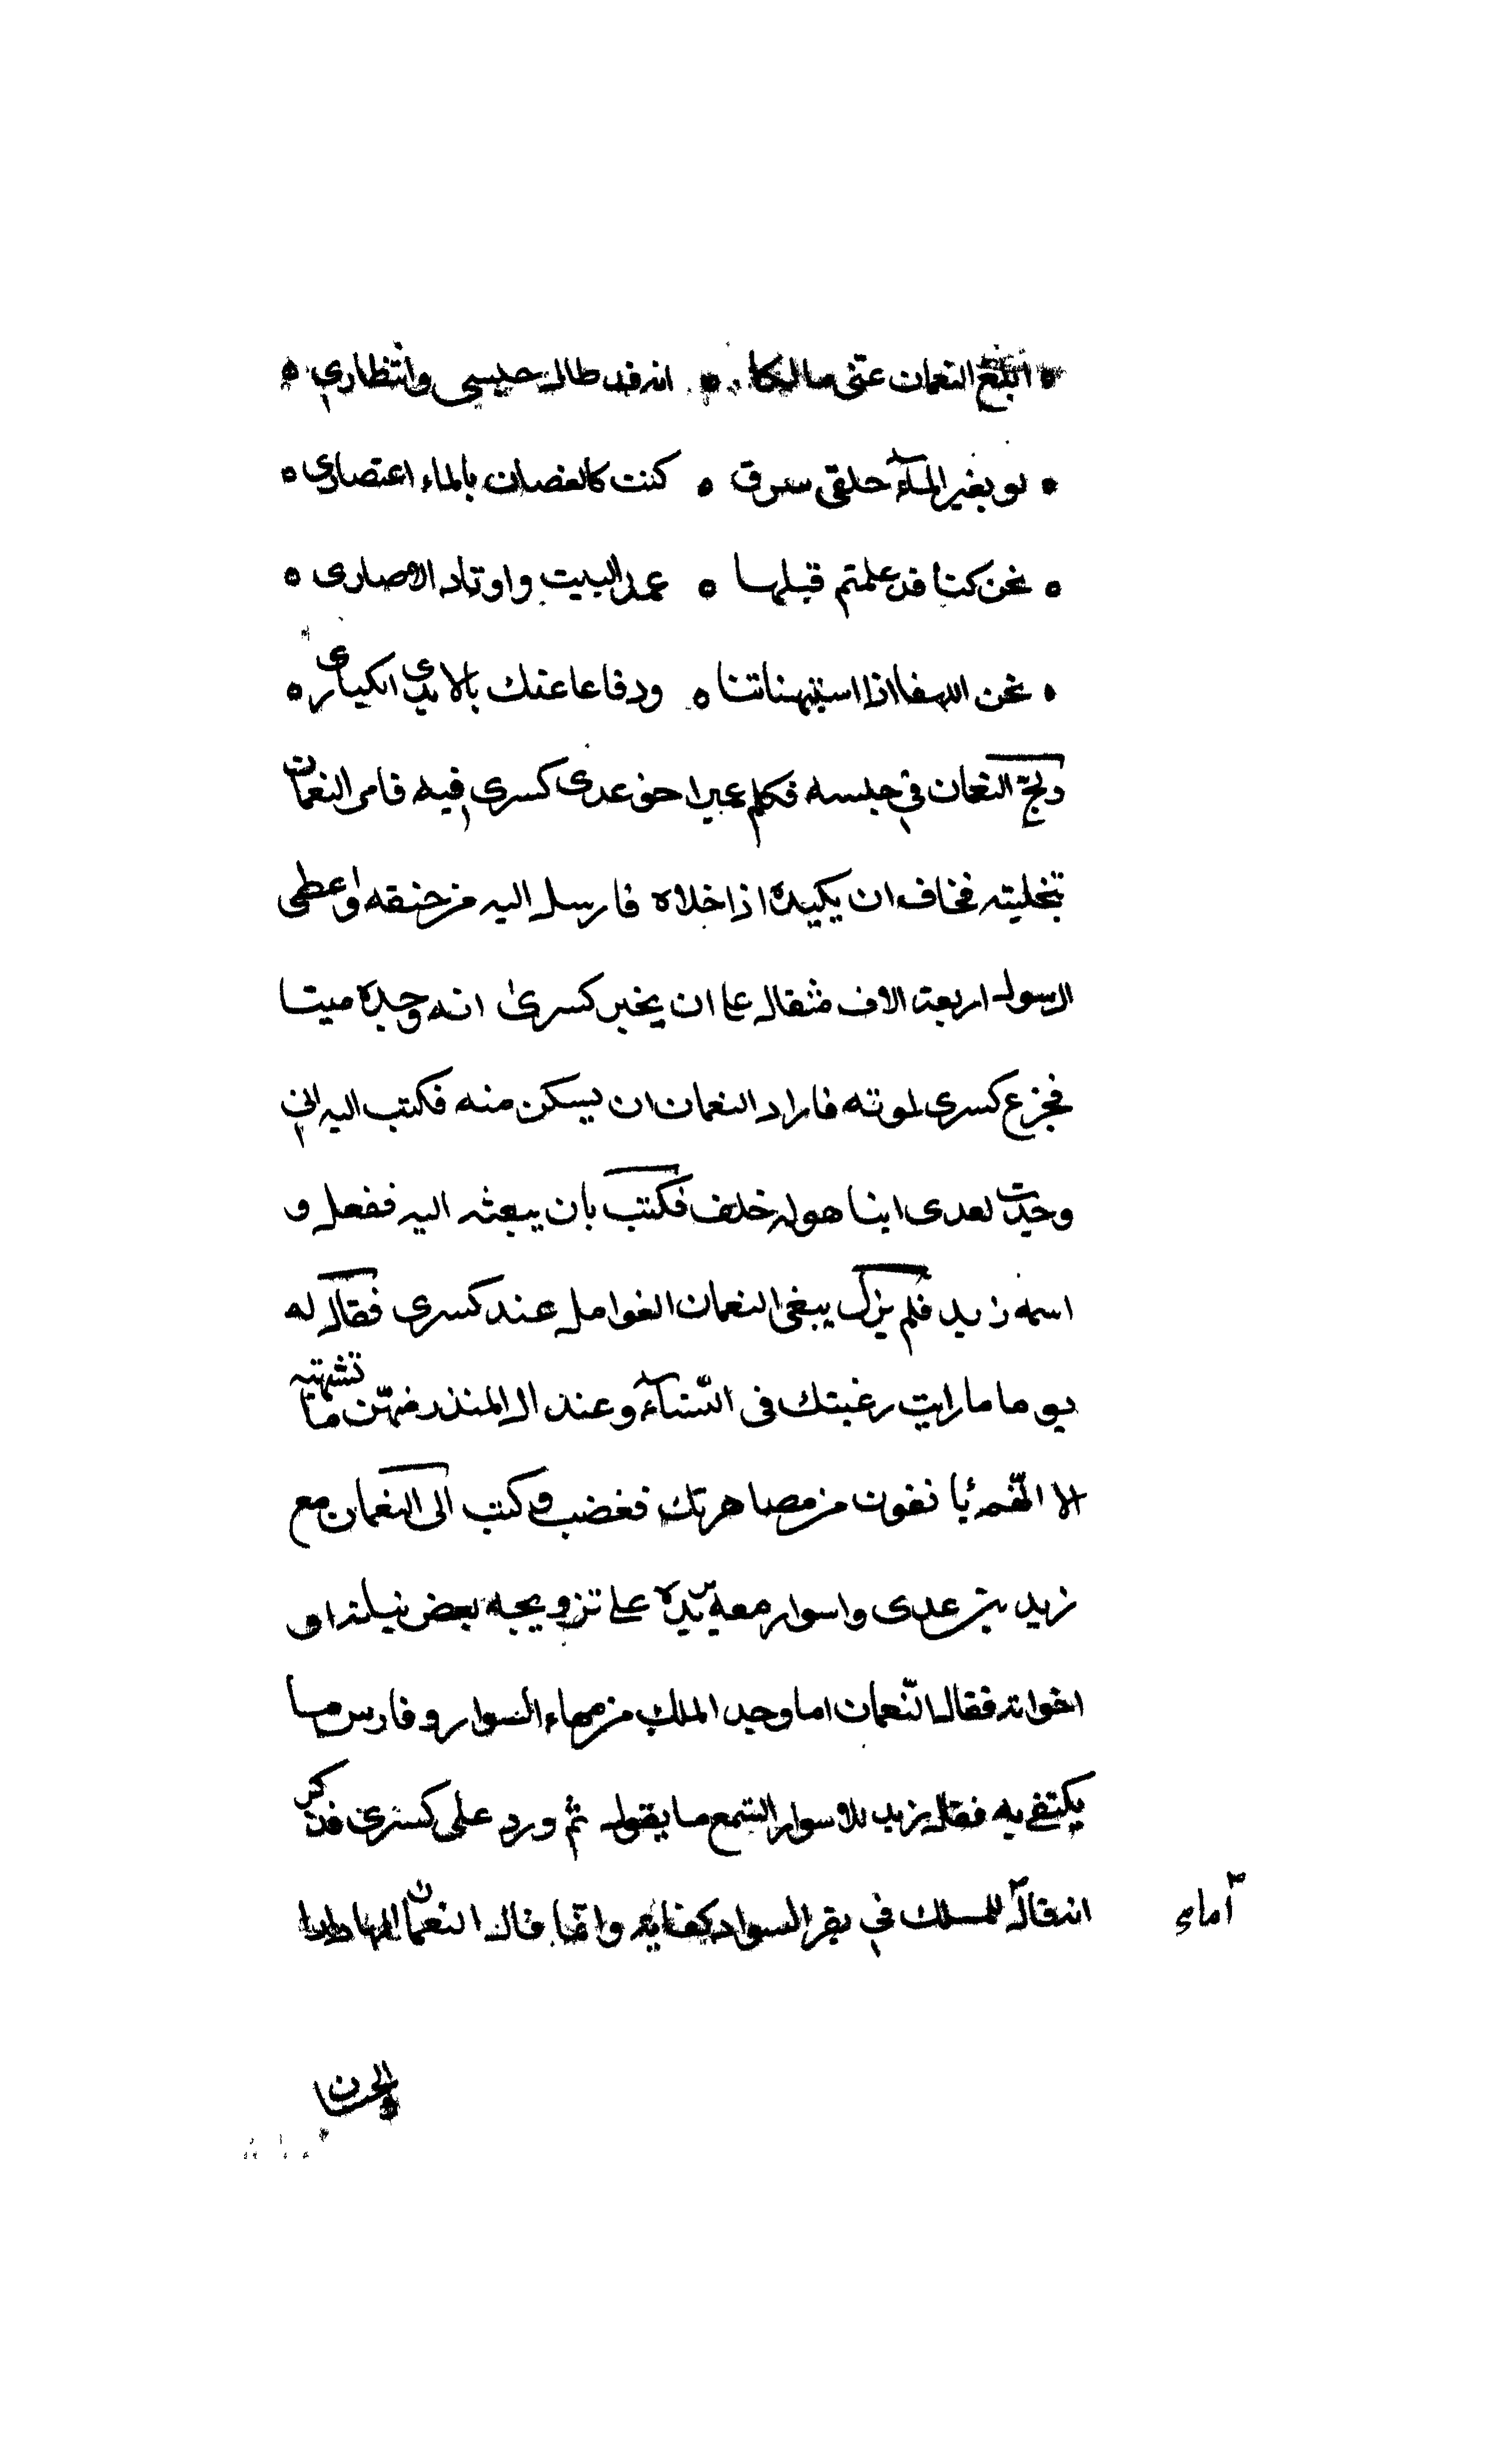 ابلغ النعمان عنى مالكا ه انه قد طال حبسى وانتظارى ه
لو بغير المآء حلقى شرق ه كنت كالغصان بالماء اعتصارى ه
ه نحن كنا قد علمتم قبلها ه عمد البيت واوتاد الاصارى ه
نحن الهفا اذا استهنأتنا ه ودفاعا عنك بالايدى الكبارى ه
ولج النعمان فى حبسه فكلم عمير اخو عدى كسرى فيه فامر النعمان
بتخليته فخاف ان يكيده اذا خلاه فارسل اليه من خنقه واعطى
الرسول اربعة الاف مثقال على ان يخبر كسرى انه وجده ميتا
فجزع كسرى لموته فاراد النعمان ان يسكن منه فكتب اليه انى
وجدت لعدى ابنا هو له خلف فكتب بان يبعثه اليه ففعل و
اسمه زيد فلم يزل يبغى النعمان الغوامل عند كسرى فقال له
يوما ما رايت رغبتك فى النسآء وعند ال المنذر منهن ما تشتهيه
الا انهم يأنفون من مصاهرتك فغضب وكتب الى النعمان مع
زيد بن عدى واسوار معه يريده على تزويجه بعض بناته او
اخواته فقال النعمان اما وجد الملك من مهاء السوار وفارس ما
يكتفى به فقال زيد للاسوار اسمع ما يقول ثم ورد على كسرى فذكر
انه قال للملك فى بقر السواد كفاية وانما قال النعمان المها طلبا
آماء
للحسن